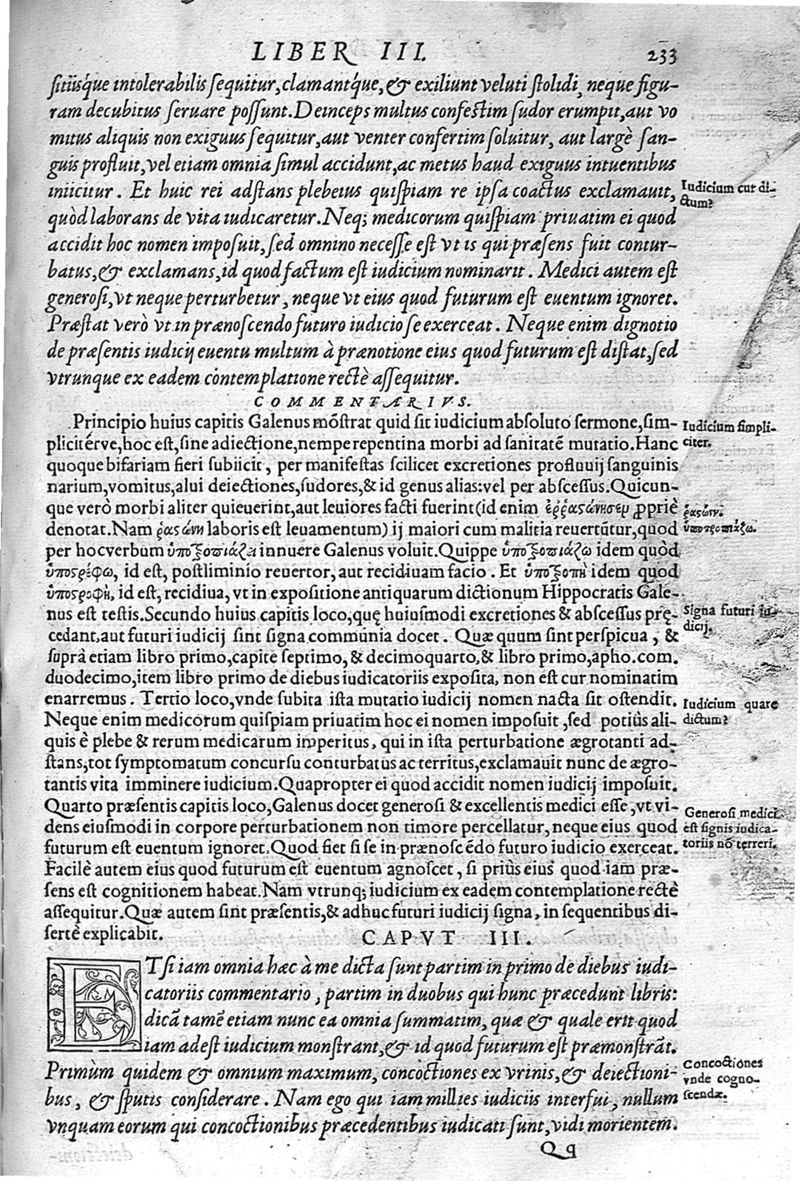 LIBER III. 233
sitiísque intolerabilis sequitur, clamantq́ue, & exiliunt veluti stolidi, neque figu-
ram decubitus seruare possunt. Deinceps multus confestim sudor erumpit, aut vo
mitus aliquis non exiguus sequitur, aut venter confertim soluitur, aut largè san-
guis profluit, vel etiam omnia simul accidunt, ac metus haud exiguus intuentibus
iniicitur. Et huic rei adstans plebeius quispiam re ipsa coactus exclamauit,
Iudicium cur di-
ctum?
quòd laborans de vita iudicaretur. Neq; medicorum quispiam priuatim ei quod
accidit hoc nomen imposuit, sed omnino necesse est vt is qui præsens fuit contur-
batus, & exclamans, id quod factum est iudicium nominarit. Medici autem est
generosi, vt neque perturbetur, neque vt eius quod futurum est euentum ignoret.
Præstat verò vt in prænoscendo futuro iudicio se exerceat. Neque enim dignotio
de præsentis iudicij euentu multum à prænotione eius quod futurum est distat, sed
vtrunque ex eadem contemplatione rectè assequitur.
COMMENTARIVS.
Principio huius capitis Galenus mõstrat quid sit iudicium absoluto sermone, sim-
Iudicium simpli-
citer.
plicitérve, hoc est, sine adiectione, nempe repentina morbi ad sanitatẽ mutatio. Hanc
quoque bifariam fieri subiicit, per manifestas scilicet excretiones profluuij sanguinis
narium, vomitus, alui deiectiones, sudores, & id genus alias: vel per abscessus. Quicun-
que verò morbi aliter quieuerint, aut leuiores facti fuerint (id enim propriè
denotat. Nam ῥαστώνη laboris est leuamentum) ij maiori cum malitia reuertũtur, quod
per hoc verbum innuere Galenus voluit. Quippe ὑποτροπιάζω idem quòd
ὑποστρέφω, id est, postliminio reuertor, aut recidiuam facio. Et ὑποτροπὴ idem quod
ὑποστροφὴ, id est, recidiua, vt in expositione antiquarum dictionum Hippocratis Gale-
nus est testis. Secundo huius capitis loco, quę huiusmodi excretiones & abscessus prę-
Signa futuri iu-
dicij.
cedant, aut futuri iudicij sint signa communia docet. Quæ quum sint perspicua, &
suprà etiam libro primo, capite septimo, & decimoquarto, & libro primo, apho. com.
duodecimo, item libro primo de diebus iudicatoriis exposita, non est cur nominatim
enarremus. Tertio loco, vnde subita ista mutatio iudicij nomen nacta sit ostendit.
Iudicium quare
dictum?
Neque enim medicorum quispiam priuatim hoc ei nomen imposuit, sed potiùs ali-
quis è plebe & rerum medicarum imperitus, qui in ista perturbatione ægrotanti ad-
stans, tot symptomatum concursu conturbatus ac territus, exclamauit nunc de ægro-
tantis vita imminere iudicium. Quapropter ei quod accidit nomen iudicij imposuit.
Quarto præsentis capitis loco, Galenus docet generosi & excellentis medici esse, vt vi-
Generosi medici
est signis iudica-
toriis nõ terreri.
dens eiusmodi in corpore perturbationem non timore percellatur, neque eius quod
futurum est euentum ignoret. Quod fiet si se in prænoscẽdo futuro iudicio exerceat.
Facilè autem eius quod futurum est euentum agnoscet, si priùs eius quod iam præ-
sens est cognitionem habeat. Nam vtrunq; iudicium ex eadem contemplatione rectè
assequitur. Quæ autem sint præsentis, & adhuc futuri iudicij signa, in sequentibus di-
sertè explicabit.
CAPVT III.
ETsi iam omnia hæc à me dicta sunt partim in primo de diebus iudi-
catoriis commentario, partim in duobus qui hunc præcedunt libris:
dicã tamẽ etiam nunc ea omnia summatim, quæ & quale erit quod
iam adest iudicium monstrant, & id quod futurum est præmonstrãt.
Primùm quidem & omnium maximum, concoctiones ex vrinis, & deiectioni-
Concoctiones
vnde cogno-
scendæ.
bus, & sputis considerare. Nam ego qui iam millies iudiciis interfui, nullum
vnquam eorum qui concoctionibus præcedentibus iudicati sunt, vidi morientem.
Qq